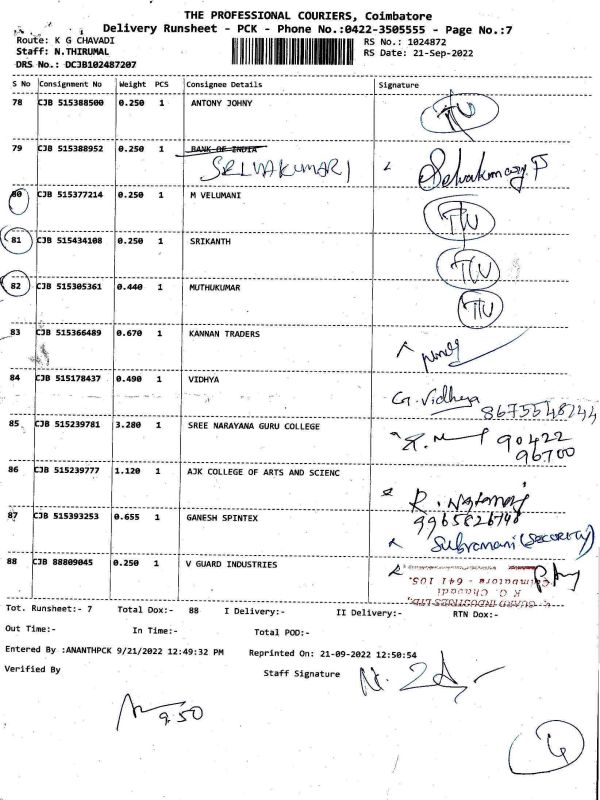 THE PROFESSIONAL COURIERS, Coimbatore
Delivery Runsheet - PCK - Phone No.:0422-3505555 - Page No.:7
Route: K G CHAVADI
RS No.: 1024872
Staff: N.THIRUMAL
RS Date: 21-Sep-2022
DRS No.: DCJB102487207
S No Consignment No Weight PCS Consignee Details Signature
78 CJB 515388500 0.250 1 ANTONY JOHNY
79 CJB 515388952 0.250 1 BANK OF INDIA
SELVAKUMARI Selvakumary P
80 CJB 515377214 0.250 1 M VELUMANI
81 CJB 515434108 0.250 1 SRIKANTH
82 CJB 515305361 0.440 1 MUTHUKUMAR
83 CJB 515366489 0.670 1 KANNAN TRADERS
84 CJB 515178437 0.490 1 VIDHYA
G. Vidhya
8675548244
85 CJB 515239781 3.280 1 SREE NARAYANA GURU COLLEGE
90422
96700
86 CJB 515239777 1.120 1 AJK COLLEGE OF ARTS AND SCIENC
87 CJB 515393253 0.655 1 GANESH SPINTEX
Subramani (Security)
88 CJB 88809045 0.250 1 V GUARD INDUSTRIES
V. GUARD INDUSTRIES LTD.,
K. G. Chavadi
Coimbatore - 641 105.
Tot. Runsheet:- 7 Total Dox:- 88 I Delivery:- II Delivery:- RTN Dox:-
Out Time:- In Time:- Total POD:-
Entered By :ANANTHPCK 9/21/2022 12:49:32 PM Reprinted On: 21-09-2022 12:50:54
Verified By Staff Signature
9.50